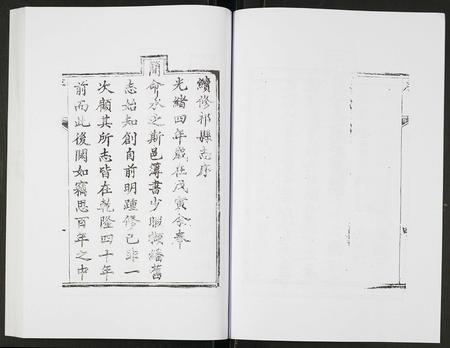 續修祁縣志序
光緒四年歲在戊寅余奉
簡命承乏斯邑簿書少暇披繙舊
志始知創自前明踵修已非一
次顧其所志皆在乾隆四十年
前而此後闕如竊思百年之中